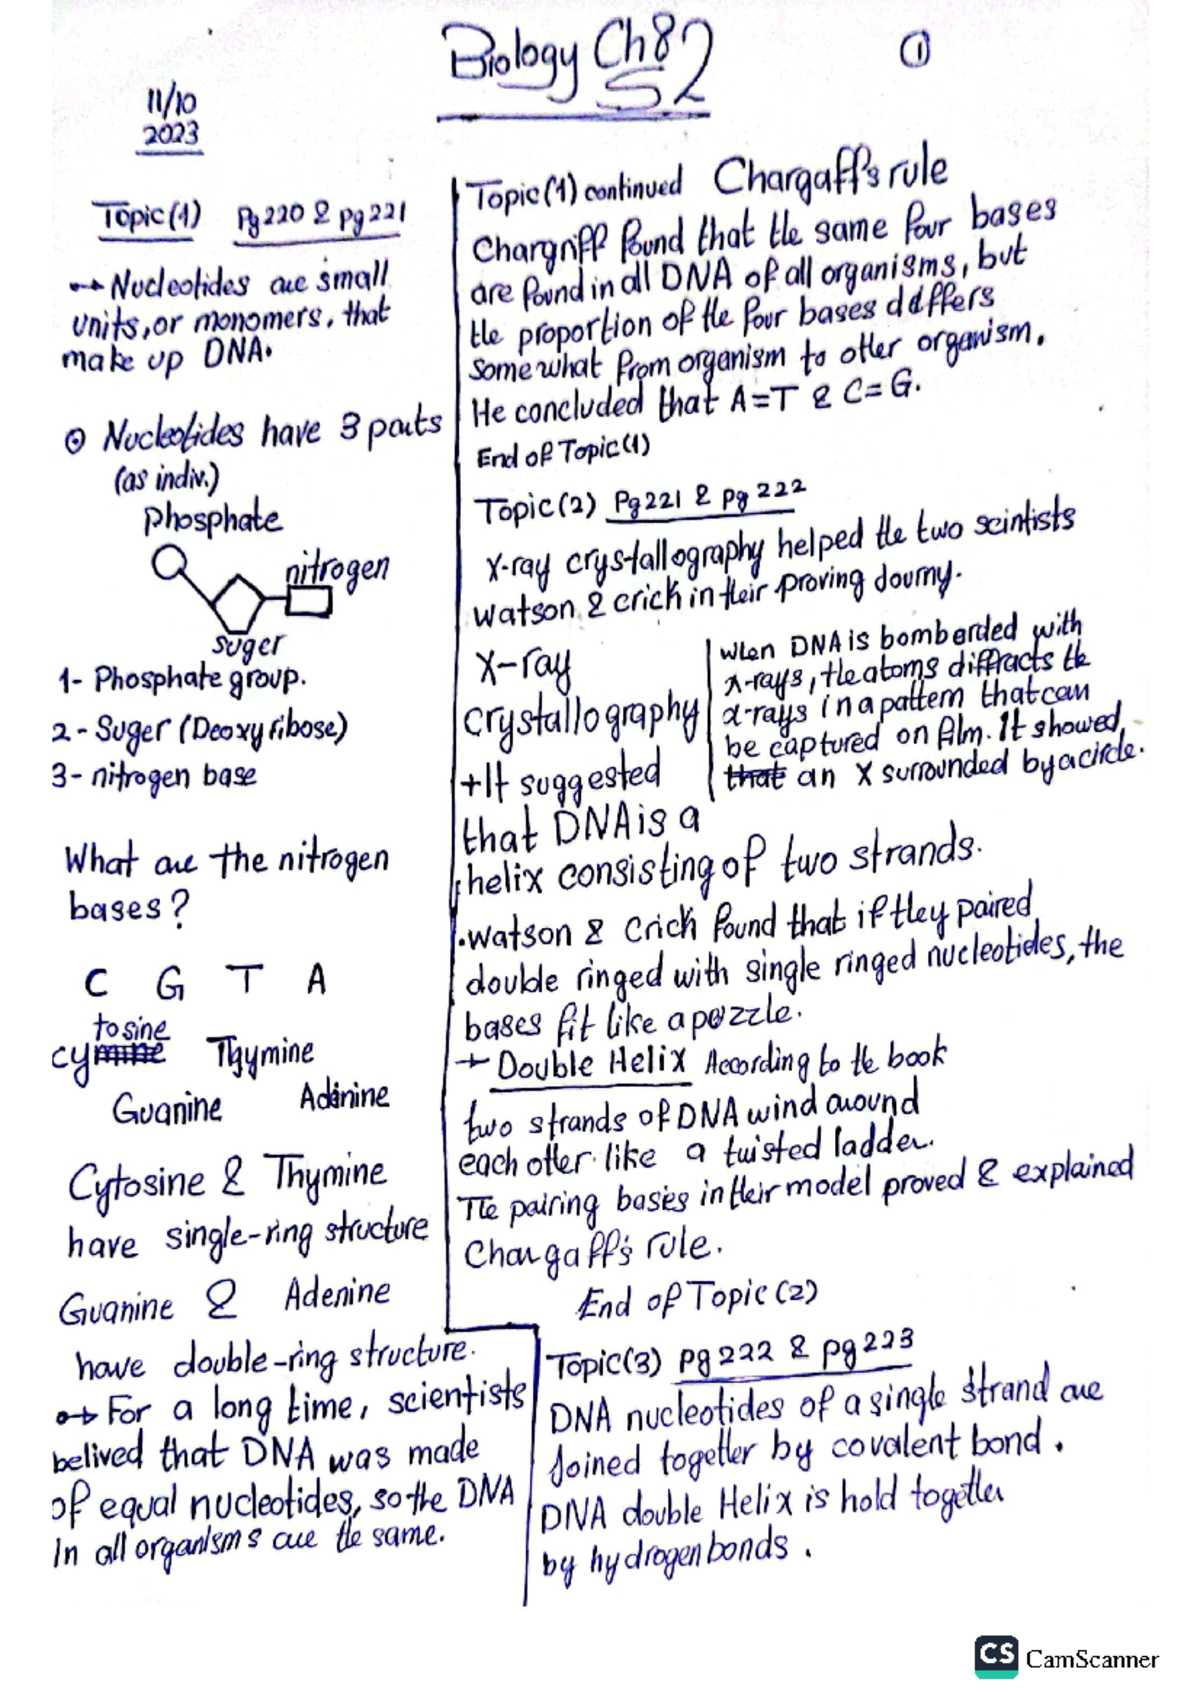 Biology Ch8 S2
1
11/10
2023
Topic(1) Pg220 & pg221
Nucleotides are small
units, or monomers, that
make up DNA.
Nucleotides have 3 parts
(as indiv.)
phosphate
nitrogen
suger
1- Phosphate group.
2- Suger (Deoxyribose)
3- nitrogen base
What are the nitrogen
bases?
C G T A
tosine
cymine Thymine
Guanine Adinine
Cytosine & Thymine
have single-ring structure
Guanine & Adenine
have double-ring structure.
For a long time, scientists
belived that DNA was made
of equal nucleotides, so the DNA
in all organisms are the same.
Topic(1) continued Chargaff's rule
Chargriff found that the same four bases
are found in all DNA of all organisms, but
the proportion of the four bases ddffers
somewhat from organism to other organism.
He concluded that A=T & C=G.
End of Topic(1)
Topic(2) Pg221 & pg 222
X-ray crystallography helped the two scintists
watson & crich in their proving dourny.
X-ray
crystallography
+It suggested
that DNA is a
helix consisting of two strands.
When DNA is bomberded with
x-rays, the atoms diffracts the
x-rays in a pattern that can
be captured on film. It showed
that an X surrounded by a circle.
.watson & Crick found that if they paired
double ringed with single ringed nucleotides, the
bases fit like a puzzle.
→ Double Helix According to the book
two strands of DNA wind around
each other like a twisted ladder.
The pairing bases in their model proved & explained
Chargaff's rule.
End of Topic(2)
Topic(3) pg 222 & pg 223
DNA nucleotides of a single strand are
Joined together by covalent bond.
DNA double Helix is hold together
by hydrogen bonds.
CS CamScanner